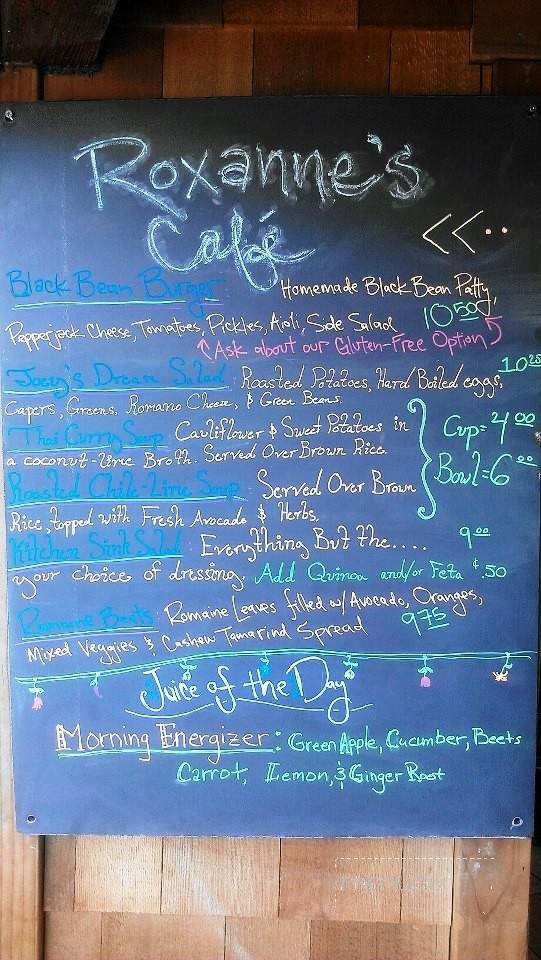 Roxanne's
Café
<<..
Black Bean Burger Homemade Black Bean Patty,
Pepperjack Cheese, Tomatoes, Pickles, Aioli, Side Salad 10 50
Ask about our Gluten-Free Option
Joey's Dream Salad: Roasted Potatoes, Hard Boiled eggs, 10 25
Capers, Greens, Romano Cheese, & Green Beans
Thai Curry Soup Cauliflower & Sweet Potatoes in
a coconut-lime Broth. Served Over Brown Rice
Cup=4 00
Bowl=6 00
Roasted Chile-Lime Soup: Served Over Brown
Rice, topped with Fresh Avocado & Herbs,
Kitchen Sink Salad: Everything But the.... 9 00
your choice of dressing. Add Quinoa and/or Feta $.50
Romaine Boats: Romaine Leaves filled w/ Avocado, Oranges,
Mixed Veggies & Cashew Tamarind Spread 9 75
Juice of the Day
Morning Energizer: Green Apple, Cucumber, Beets
Carrot, Lemon, & Ginger Root